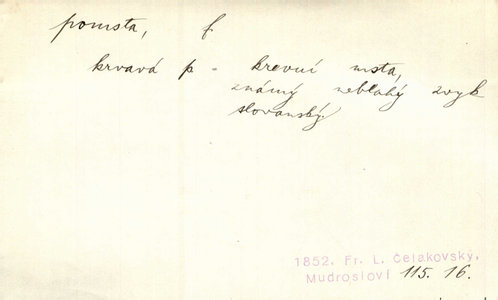 pomsta, f
krvavá p - krevní msta,
známý neblahý zvyk
slovanský.
1852. Fr. L. Čelakovský,
Mudrosloví 115. 16.